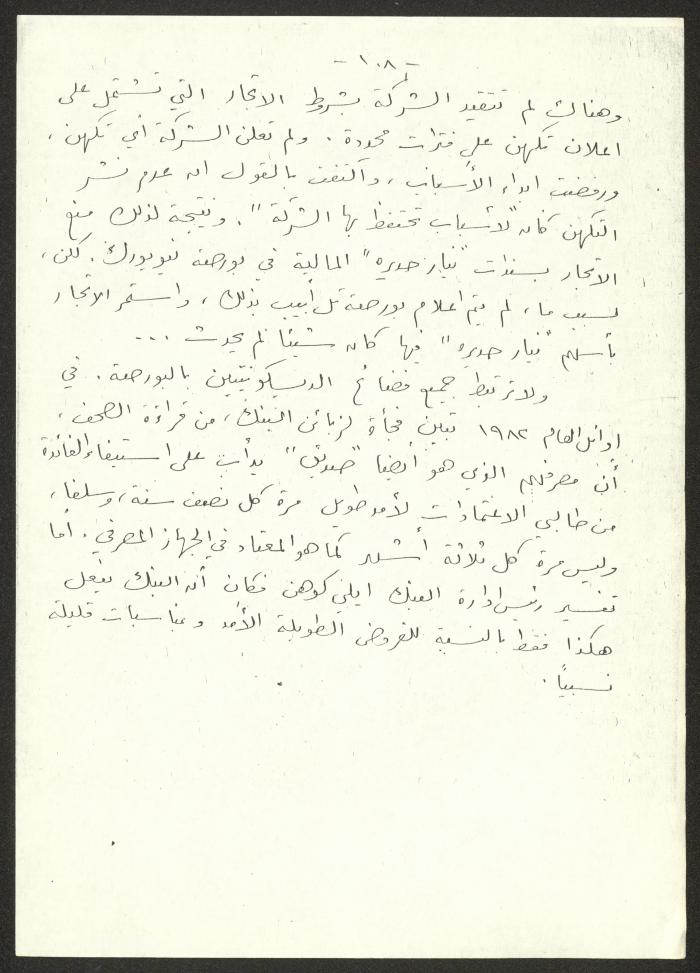 -١٠٨-
وهناك لم تتقيد الشركة بشروط الاتجار التي تشتمل على
اعلان تكهن على فترات محددة. ولم تعلن الشركة أي تكهن،
ورفضت ابداء الأسباب، واكتفت بالقول ان عدم نشر
التكهن كان "لأسباب تحتفظ بها الشركة". ونتيجة لذلك منع
الاتجار بسندات "نيار حديره" المالية في بورصة نيويورك. لكن،
لسبب ما، لم يتم اعلام بورصة تل أبيب بذلك، واستمر الاتجار
بأسهم "نيار حديره" فيها كان شيئا لم يحدث ...
ولا ترتبط جميع فضائح الديسكونتيين بالبورصة. في
اوائل العام ١٩٨٢ تبين فجأة لزبائن البنك، من قراءة الصحف،
أن مصرفهم الذي هو أيضا "صديق" يدأب على استيفاء الفائدة
من طالبي الاعتمادات لأمد طويل مرة كل نصف سنة، وسلفا،
وليس مرة كل ثلاثة أشهر كما هو المعتاد في الجهاز المصرفي. أما
تفسير رئيس ادارة البنك ايلي كوهن فكان أن البنك يفعل
هكذا فقط بالنسبة للقروض الطويلة الأمد وبمناسبات قليلة
نسبياً.